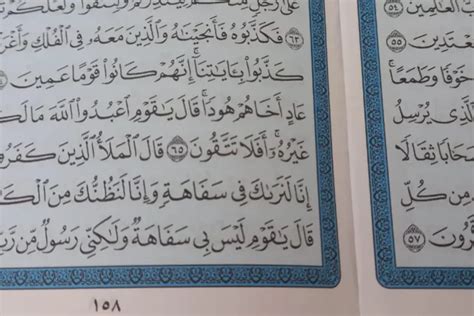 ٱلْعَٰلَمِينَ ٥٤
عْتَدِينَ ٥٥
خَوْفًا وَطَمَعًا ۚ
لَّذِى يُرْسِلُ
حَابًا ثِقَالًا
مِن كُلِّ
كَّرُونَ ٥٧
عَلَىٰ رَجُلٍ مِّنكُمْ لِيُنذِرَكُمْ وَلِتَتَّقُوا۟ وَلَعَلَّكُمْ
٦٣ فَكَذَّبُوهُ فَأَنجَيْنَٰهُ وَٱلَّذِينَ مَعَهُۥ فِى ٱلْفُلْكِ وَأَغْرَ
كَذَّبُوا۟ بِـَٔايَٰتِنَآ ۚ إِنَّهُمْ كَانُوا۟ قَوْمًا عَمِينَ
عَادٍ أَخَاهُمْ هُودًا ۗ قَالَ يَٰقَوْمِ ٱعْبُدُوا۟ ٱللَّهَ مَا لَكُ
غَيْرُهُۥٓ ۚ أَفَلَا تَتَّقُونَ ٦٥ قَالَ ٱلْمَلَأُ ٱلَّذِينَ كَفَرُ
إِنَّا لَنَرَىٰكَ فِى سَفَاهَةٍ وَإِنَّا لَنَظُنُّكَ مِنَ ٱلْكَ
قَالَ يَٰقَوْمِ لَيْسَ بِى سَفَاهَةٌ وَلَٰكِنِّى رَسُولٌ مِّن رَّبِّ
١٥٨